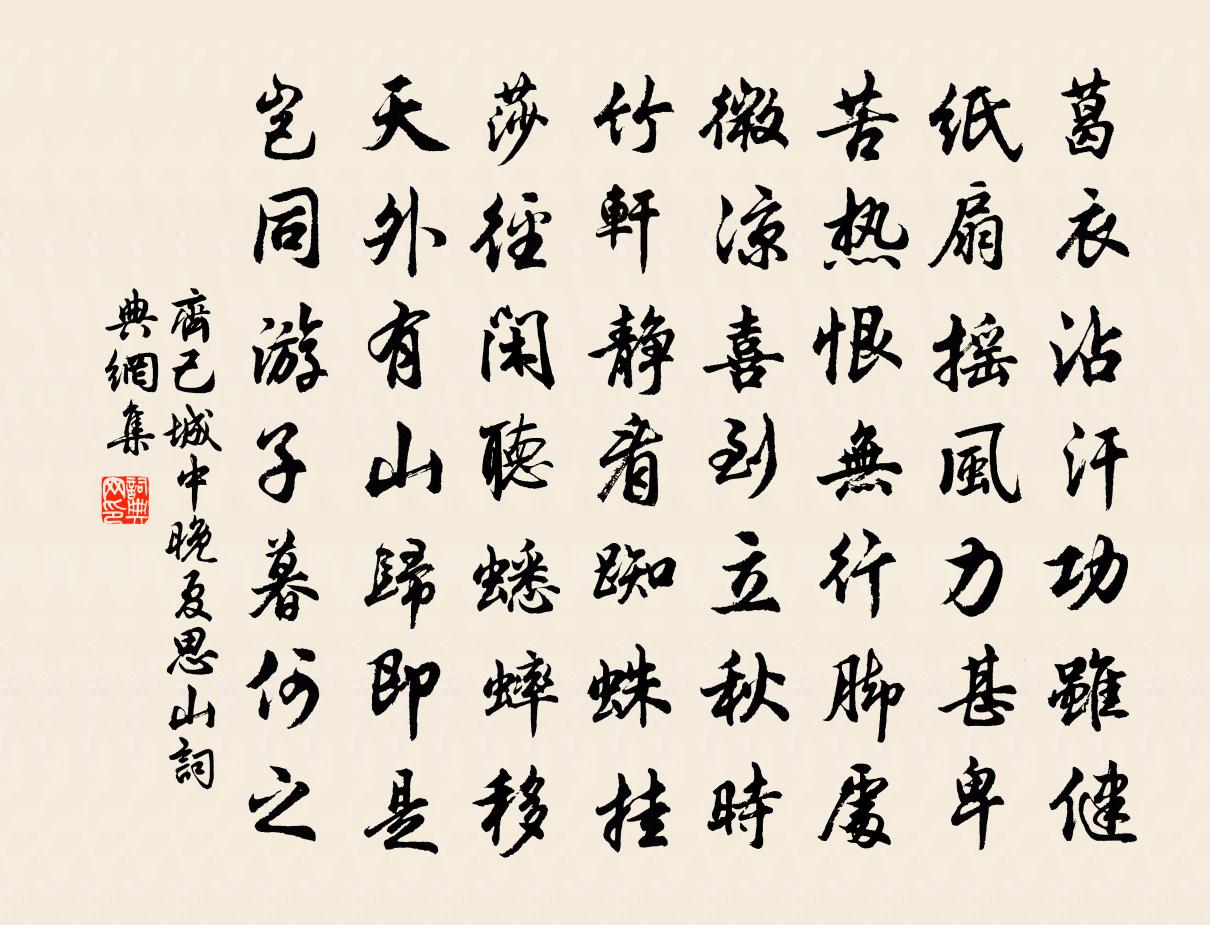 葛衣沾汗功雖健
纸扇摇風力甚卑
苦热恨無行脚處
微凉喜到立秋時
竹軒静看蜘蛛挂
莎徑閑聽蟋蟀移
天外有山歸即是
岂同游子暮何之
齊己城中晚夏思山詞
典網集
詞典
网印